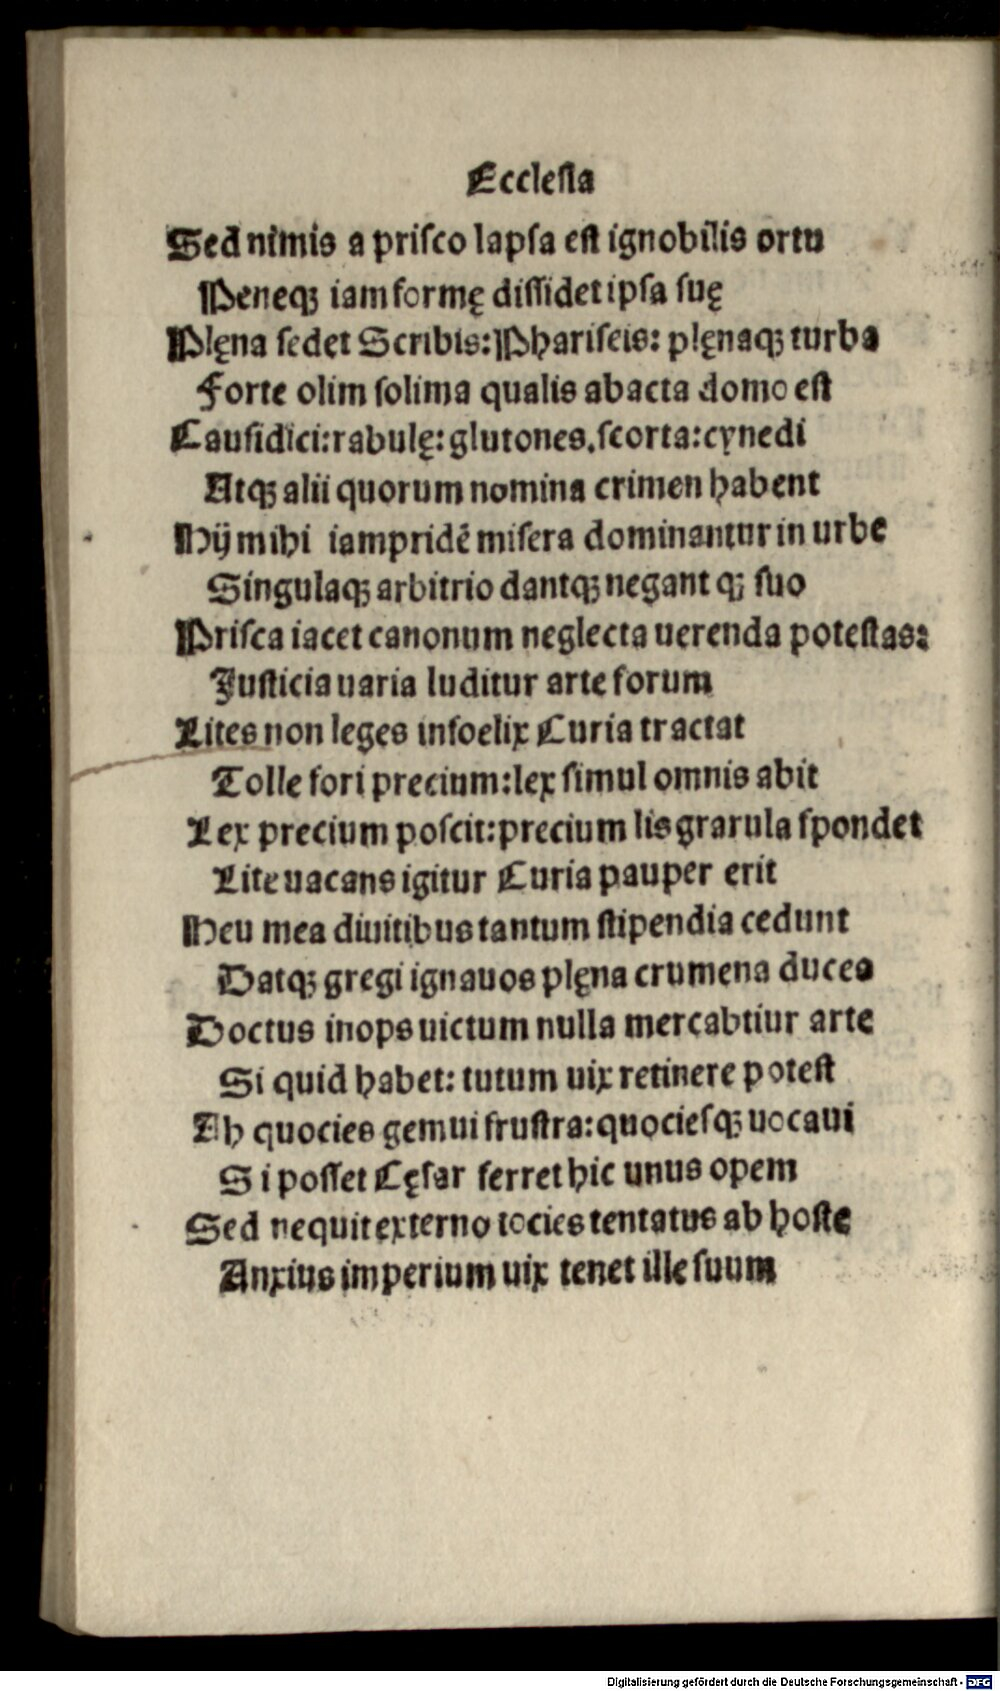 Eccleſia
Sed nimis a priſco lapſa eſt ignobilis ortu
Peneqꝫ iam formę diſſidet ipſa ſuę
Plęna ſedet Scribis: Phariſeis: plęnaqꝫ turba
Forte olim ſolima qualis abacta domo eſt
Cauſidici: rabulę: glutones. ſcorta: cynedi
Atqꝫ alii quorum nomina crimen habent
Hij mihi iampridē miſera dominantur in urbe
Singulaqꝫ arbitrio dantqꝫ negant qꝫ ſuo
Priſca iacet canonum neglecta uerenda poteſtas:
Juſticia uaria luditur arte forum
Lites non leges infoelix Curia tractat
Tolle fori precium: lex ſimul omnis abit
Lex precium poſcit: precium lis grarula ſpondet
Lite uacans igitur Curia pauper erit
Heu mea diuitibus tantum ſtipendia cedunt
Datqꝫ gregi ignauos plęna crumena duces
Doctus inops uictum nulla mercabtiur arte
Si quid habet: tutum uix retinere poteſt
Ah quocies gemui fruſtra: quocieſqꝫ uocaui
Si poſſet Cęſar ferret hic unus opem
Sed nequit externo tocies tentatus ab hoſte
Anxius imperium uix tenet ille ſuum
Digitalisierung gefördert durch die Deutsche Forschungsgemeinschaft - DFG